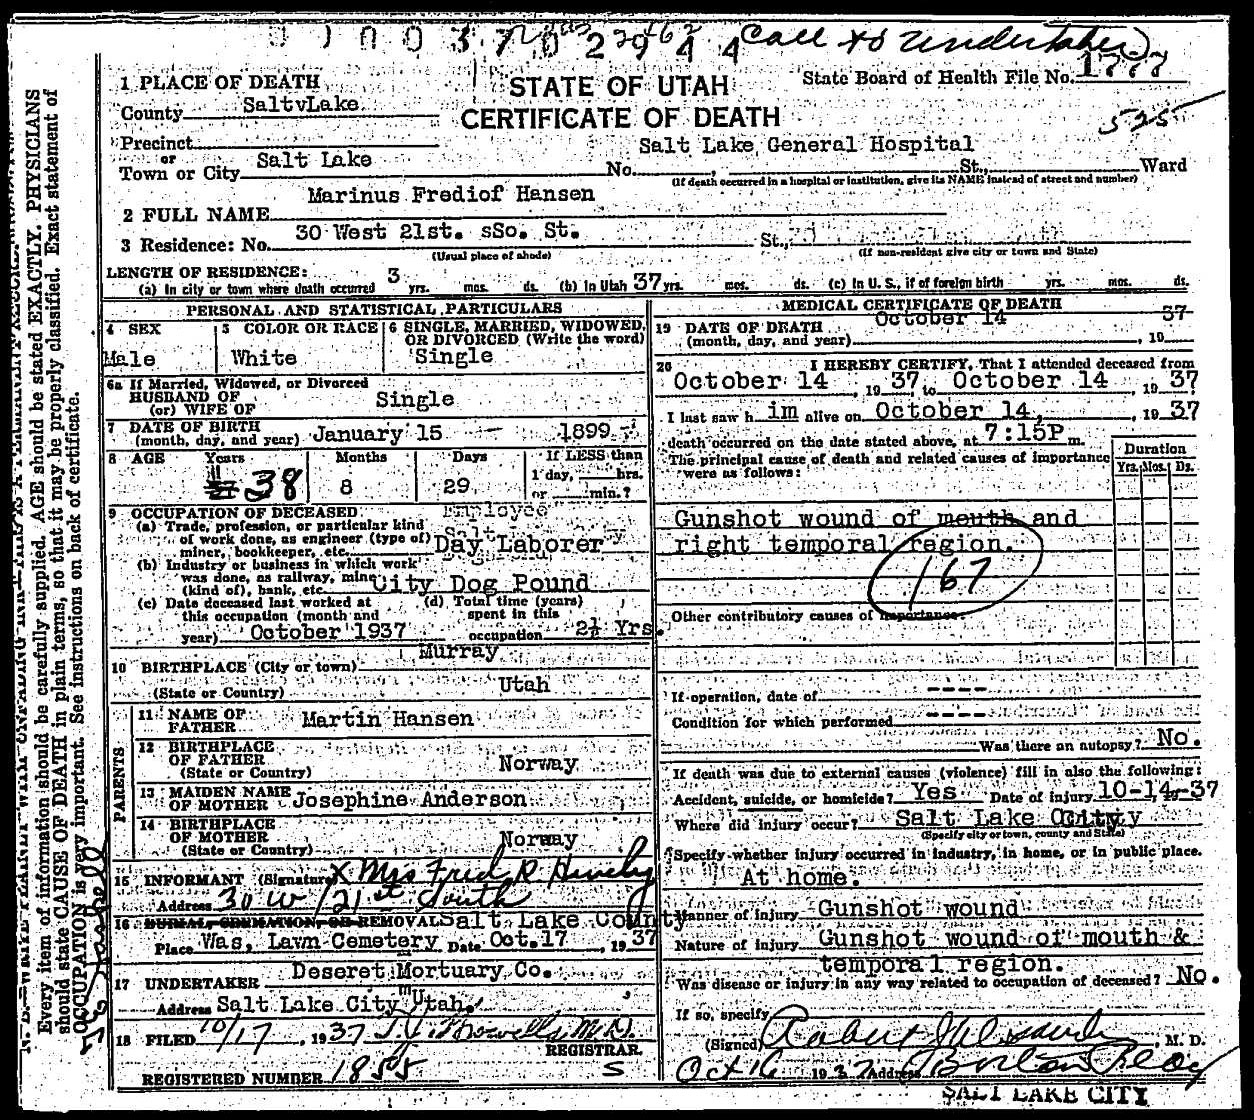 Call to Undertaker
STATE OF UTAH
CERTIFICATE OF DEATH
State Board of Health File No. 1777
525
1 PLACE OF DEATH
County SaltvLake
Precinct
or
Town or City Salt Lake No. , St., Ward
Salt Lake General Hospital
(If death occurred in a hospital or institution, give its NAME instead of street and number)
2 FULL NAME Marinus Frediof Hansen
3 Residence: No. 30 West 21st. sSo. St. St.,
(Usual place of abode) (If non-resident give city or town and State)
LENGTH OF RESIDENCE:
(a) In city or town where death occurred 3 yrs. mos. ds. (b) In Utah 37 yrs. mos. ds. (c) In U. S., if of foreign birth yrs. mos. ds.
PERSONAL AND STATISTICAL PARTICULARS
4 SEX Male
5 COLOR OR RACE White
6 SINGLE, MARRIED, WIDOWED, OR DIVORCED (Write the word) Single
6a If Married, Widowed, or Divorced
HUSBAND OF
(or) WIFE OF Single
7 DATE OF BIRTH
(month, day, and year) January 15 1899
8 AGE Years Months Days If LESS than
1 day, hrs.
or min.?
38 8 29
9 OCCUPATION OF DECEASED Employee
(a) Trade, profession, or particular kind
of work done, as engineer (type of)
miner, bookkeeper, etc. Day Laborer
(b) Industry or business in which work
was done, as railway, mine
(kind of), bank, etc. City Dog Pound
(c) Date deceased last worked at
this occupation (month and
year) October 1937
(d) Total time (years)
spent in this
occupation 2½ Yrs.
10 BIRTHPLACE (City or town) Murray
(State or Country) Utah
PARENTS
11 NAME OF
FATHER Martin Hansen
12 BIRTHPLACE
OF FATHER
(State or Country) Norway
13 MAIDEN NAME
OF MOTHER Josephine Anderson
14 BIRTHPLACE
OF MOTHER
(State or Country) Norway
15 INFORMANT (Signature) X Mrs Fred R
Address 30 W 21st South
16 BURIAL CREMATION OR REMOVAL Salt Lake County
Place Was, Lawn Cemetery Date Oct.17, 1937
17 UNDERTAKER Deseret Mortuary Co.
Address Salt Lake City Utah.
18 FILED 10/17, 1937 M.D.
REGISTRAR.
REGISTERED NUMBER 1855
S
MEDICAL CERTIFICATE OF DEATH
19 DATE OF DEATH
(month, day, and year) October 14, 19 37
20 I HEREBY CERTIFY, That I attended deceased from
October 14, 19 37, to October 14, 19 37
I last saw h im alive on October 14, , 19 37
death occurred on the date stated above, at 7:15P m.
The principal cause of death and related causes of importance
were as follows:
Duration
Yrs. Mos. Ds.
Gunshot wound of mouth and
right temporal region.
167
Other contributory causes of importance.
If operation, date of ----
Condition for which performed ----
Was there an autopsy? No.
If death was due to external causes (violence) fill in also the following:
Accident, suicide, or homicide? Yes Date of injury 10-14,-37
Where did injury occur? Salt Lake City
(Specify city or town, county and State)
Specify whether injury occurred in industry, in home, or in public place.
At home.
Manner of injury Gunshot wound
Nature of injury Gunshot wound of mouth &
temporal region.
Was disease or injury in any way related to occupation of deceased? No.
If so, specify
(Signed) Robert J , M. D.
Oct 16 1937 Address Boston Bldg
SALT LAKE CITY
Every item of information should be carefully supplied. AGE should be stated EXACTLY. PHYSICIANS
should state CAUSE OF DEATH in plain terms, so that it may be properly classified. Exact statement of
OCCUPATION is very important. See instructions on back of certificate.